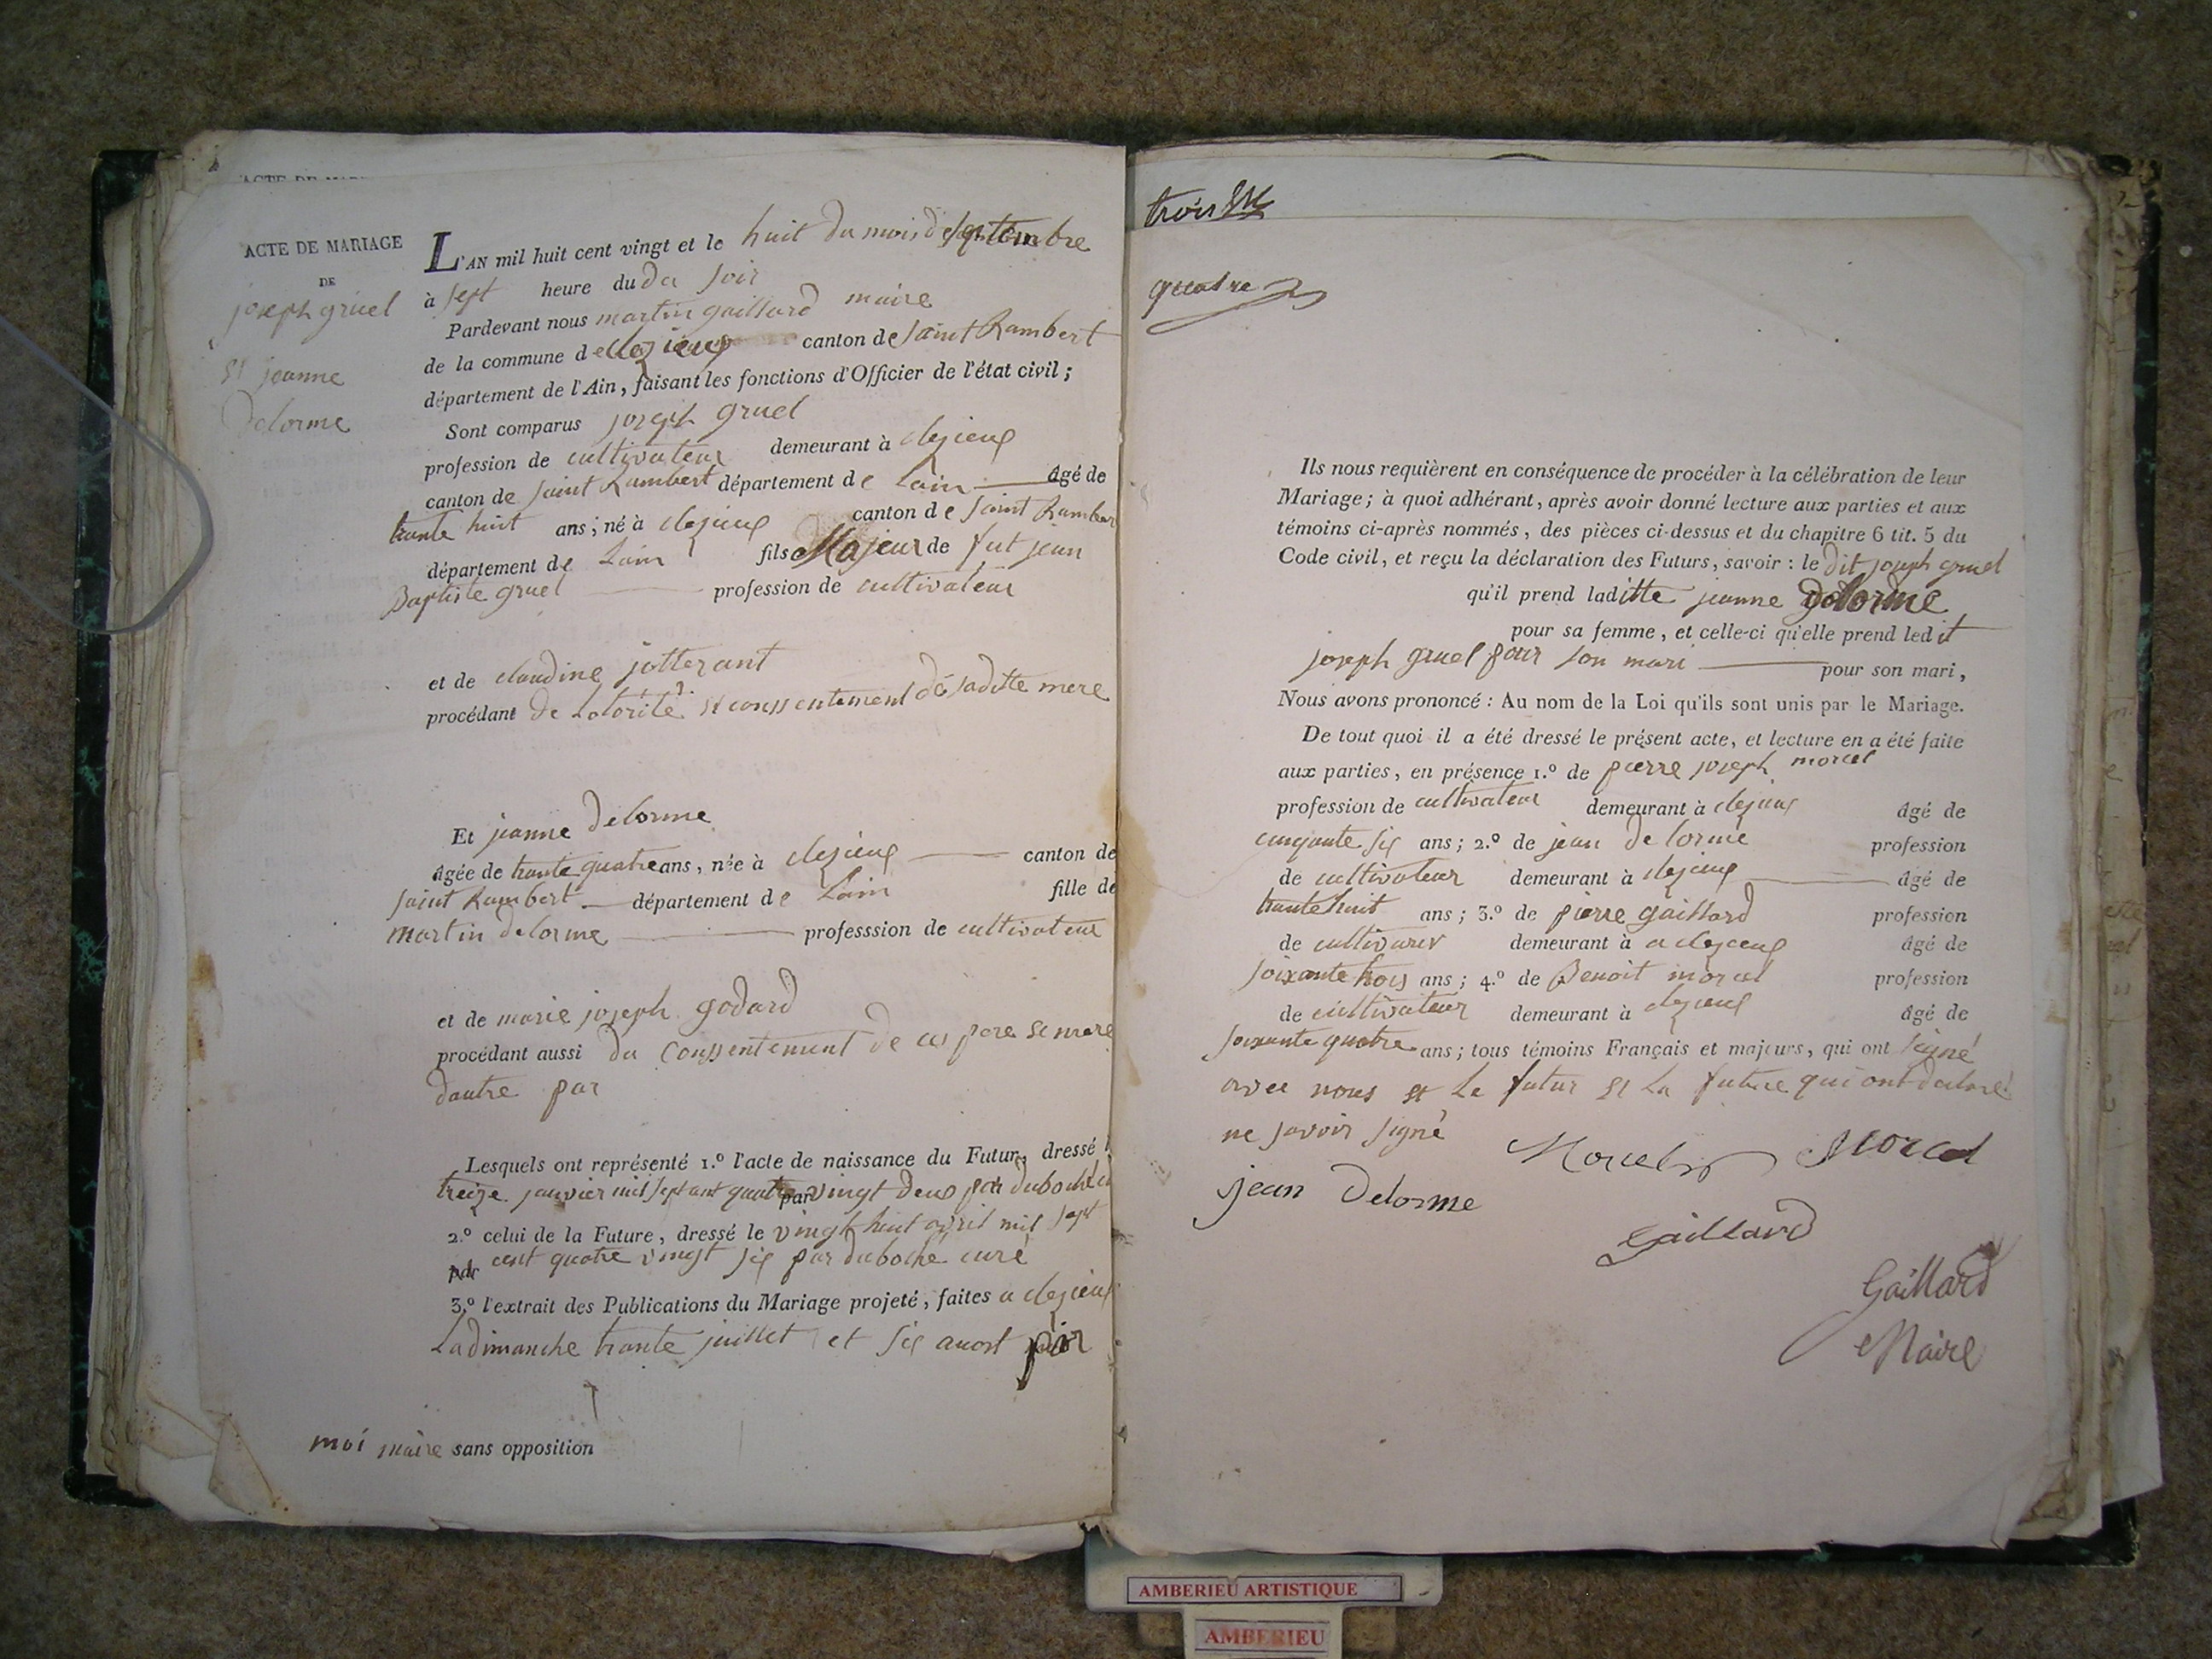 ACTE DE MARIAGE
DE
joseph gruel
et jeanne
Delorme
L'AN mil huit cent vingt et le huit du mois de septembre
à sept heure du du soir
Pardevant nous martin gaillard maire
de la commune de clezieux canton de saint Rambert
département de l'Ain, faisant les fonctions d'Officier de l'état civil ;
Sont comparus joseph gruel
profession de cultivateur demeurant à clezieux
canton de saint Rambert département de Lain âgé de
trante huit ans ; né à clezieux canton de saint Rambert
département de Lain fils Majeur de fut jean
Baptiste gruel profession de cultivateur
et de claudine jotterant
procédant de Lotorité et conssentement de sa ditte mere
Et jeanne Delorme
âgée de trante quatre ans, née à clezieux canton de
saint Rambert département de Lain fille de
martin delorme professsion de cultivateur
et de marie joseph godard
procédant aussi du conssentement de ces pere et mere
dautre par
Lesquels ont représenté 1.° l'acte de naissance du Futur, dressé
treize janvier mil sept cent quatre par vingt deux par duboché
2.° celui de la Future, dressé le vingt huit avril mil sept
par cent quatre vingt six par duboché curé
3.° l'extrait des Publications du Mariage projeté, faites a clezieux
La dimanche trante juillet et six auost par
moi maire sans opposition
trois
quatre
Ils nous requièrent en conséquence de procéder à la célébration de leur
Mariage ; à quoi adhérant, après avoir donné lecture aux parties et aux
témoins ci-après nommés, des pièces ci-dessus et du chapitre 6 tit. 5 du
Code civil, et reçu la déclaration des Futurs, savoir : le dit joseph gruel
qu'il prend laditte jeanne Delorme
pour sa femme, et celle-ci qu'elle prend ledit
joseph gruel pour son mari pour son mari,
Nous avons prononcé : Au nom de la Loi qu'ils sont unis par le Mariage.
De tout quoi il a été dressé le présent acte, et lecture en a été faite
aux parties, en présence 1.° de pierre joseph morcel
profession de cultivateur demeurant à clezieux âgé de
cinquante six ans ; 2.° de jean delorme profession
de cultivateur demeurant à clezieux âgé de
trante huit ans ; 3.° de pierre gaillard profession
de demeurant à a clezieux âgé de
soixante trois ans ; 4.° de Benoit morcel profession
de cultivateur demeurant à clezieux âgé de
soixante quatre ans ; tous témoins Français et majeurs, qui ont signé
avec nous et le futur et la future qui ont declaré
ne savoir signé
Morcel Morcel
jean Delorme
Gaillard
Gaillard
Maire
AMBERIEU ARTISTIQUE
AMBERIEU